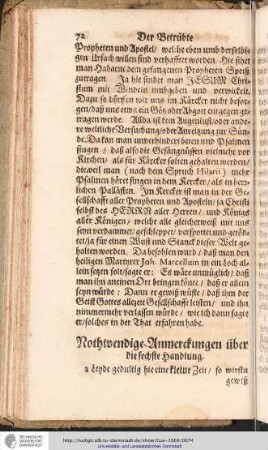 72 Der Betrübte
Propheten und Apostel/ welche eben umb derselbi-
gen Ursach willen sind verhafftet worden. Hie sihet
man Habacuc dem gefangenen Propheten Speiß
zutragen. Ja hie findet man JESUM Chri-
stum mit Windeln umbgeben und verwickelt.
Dazu so dörffen wir uns im Kärcker nicht besor-
gen/ daß uns etwa ein Götz oder Abgott zugegen ge-
tragen werde. Allda ist kein Augenlust/ oder ande-
re weltliche Versuchung/ oder Anreitzung zur Sün-
de. Da kan man unverhindert beten und Psalmen
singen/ daß also die Gefängnüssen vielmehr vor
Kirchen/ als für Kärcker solten gehalten werden/
dieweil man (nach dem Spruch Hilarii) mehr
Psalmen höret singen in dem Kercker/ als in herr-
lichen Pallästen. Im Kercker ist man in der Ge-
sellschafft aller Propheten und Apostel/ ja Christi
selbst des HERRN aller Herren/ und Königs
aller Königen/ welche alle gleicherweiß mit uns
seyn verdammet/ geschleppet/ verspottet und getöd-
tet/ ja für einen Wust und Stanck dieser Welt ge-
halten worden. Da befohlen ward/ daß man den
heiligen Martyrer Joh. Marcellum in ein Loch al-
lein setzen solt/ sagte er: Es wäre unmüglich/ daß
man ihn an einen Ort bringen könte/ daß er allein
seyn würde: Dann er gewiß wüste/ daß ihm der
Geist Gottes allezeit Gesellschafft leisten/ und ihn
nimmermehr verlassen würde/ wie ich dann sagte
er/ solches in der That erfahren habe.
Nothwendige Anmerckungen über
die sechste Handlung.
a Leyde gedultig hie eine kleine Zeit/ so wirstu
gewiß
http://tudigit.ulb.tu-darmstadt.de/show/Gun-1988/0074